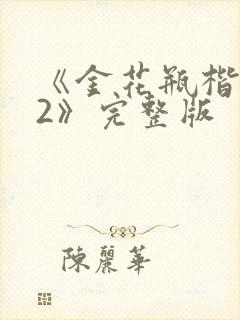 《金花瓶楷
2》完整版
陳麗華